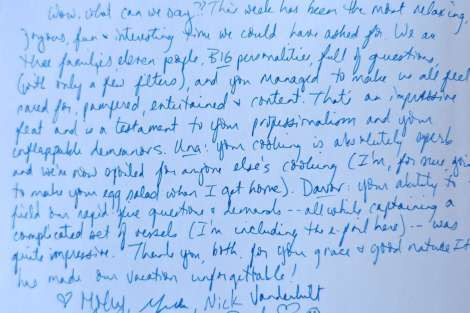 Wow, what can we say?? This week has been the most relaxing,
joyous, fun & interesting time we could have asked for. We are
three families eleven people, BIG personalities, full of questions,
(with only a few filters), and you managed to make us all feel
cared for, pampered, entertained & content. That's an impressive
feat and is a testament to your professionalism and your
inflappable demeanors. Una: your cooking is absolutely superb
and we're now spoiled for anyone else's cooking (I'm, for one, going
to make your egg salad when I get home). Davor: your ability to
field our rapid fire questions & demands -- all while captaining a
complicated set of vessels (I'm including the e-foil here) -- was
quite impressive. Thank you, both, for your grace & good nature. It
has made our vacation unforgettable!
♡ Molly, Nick Vanderbilt